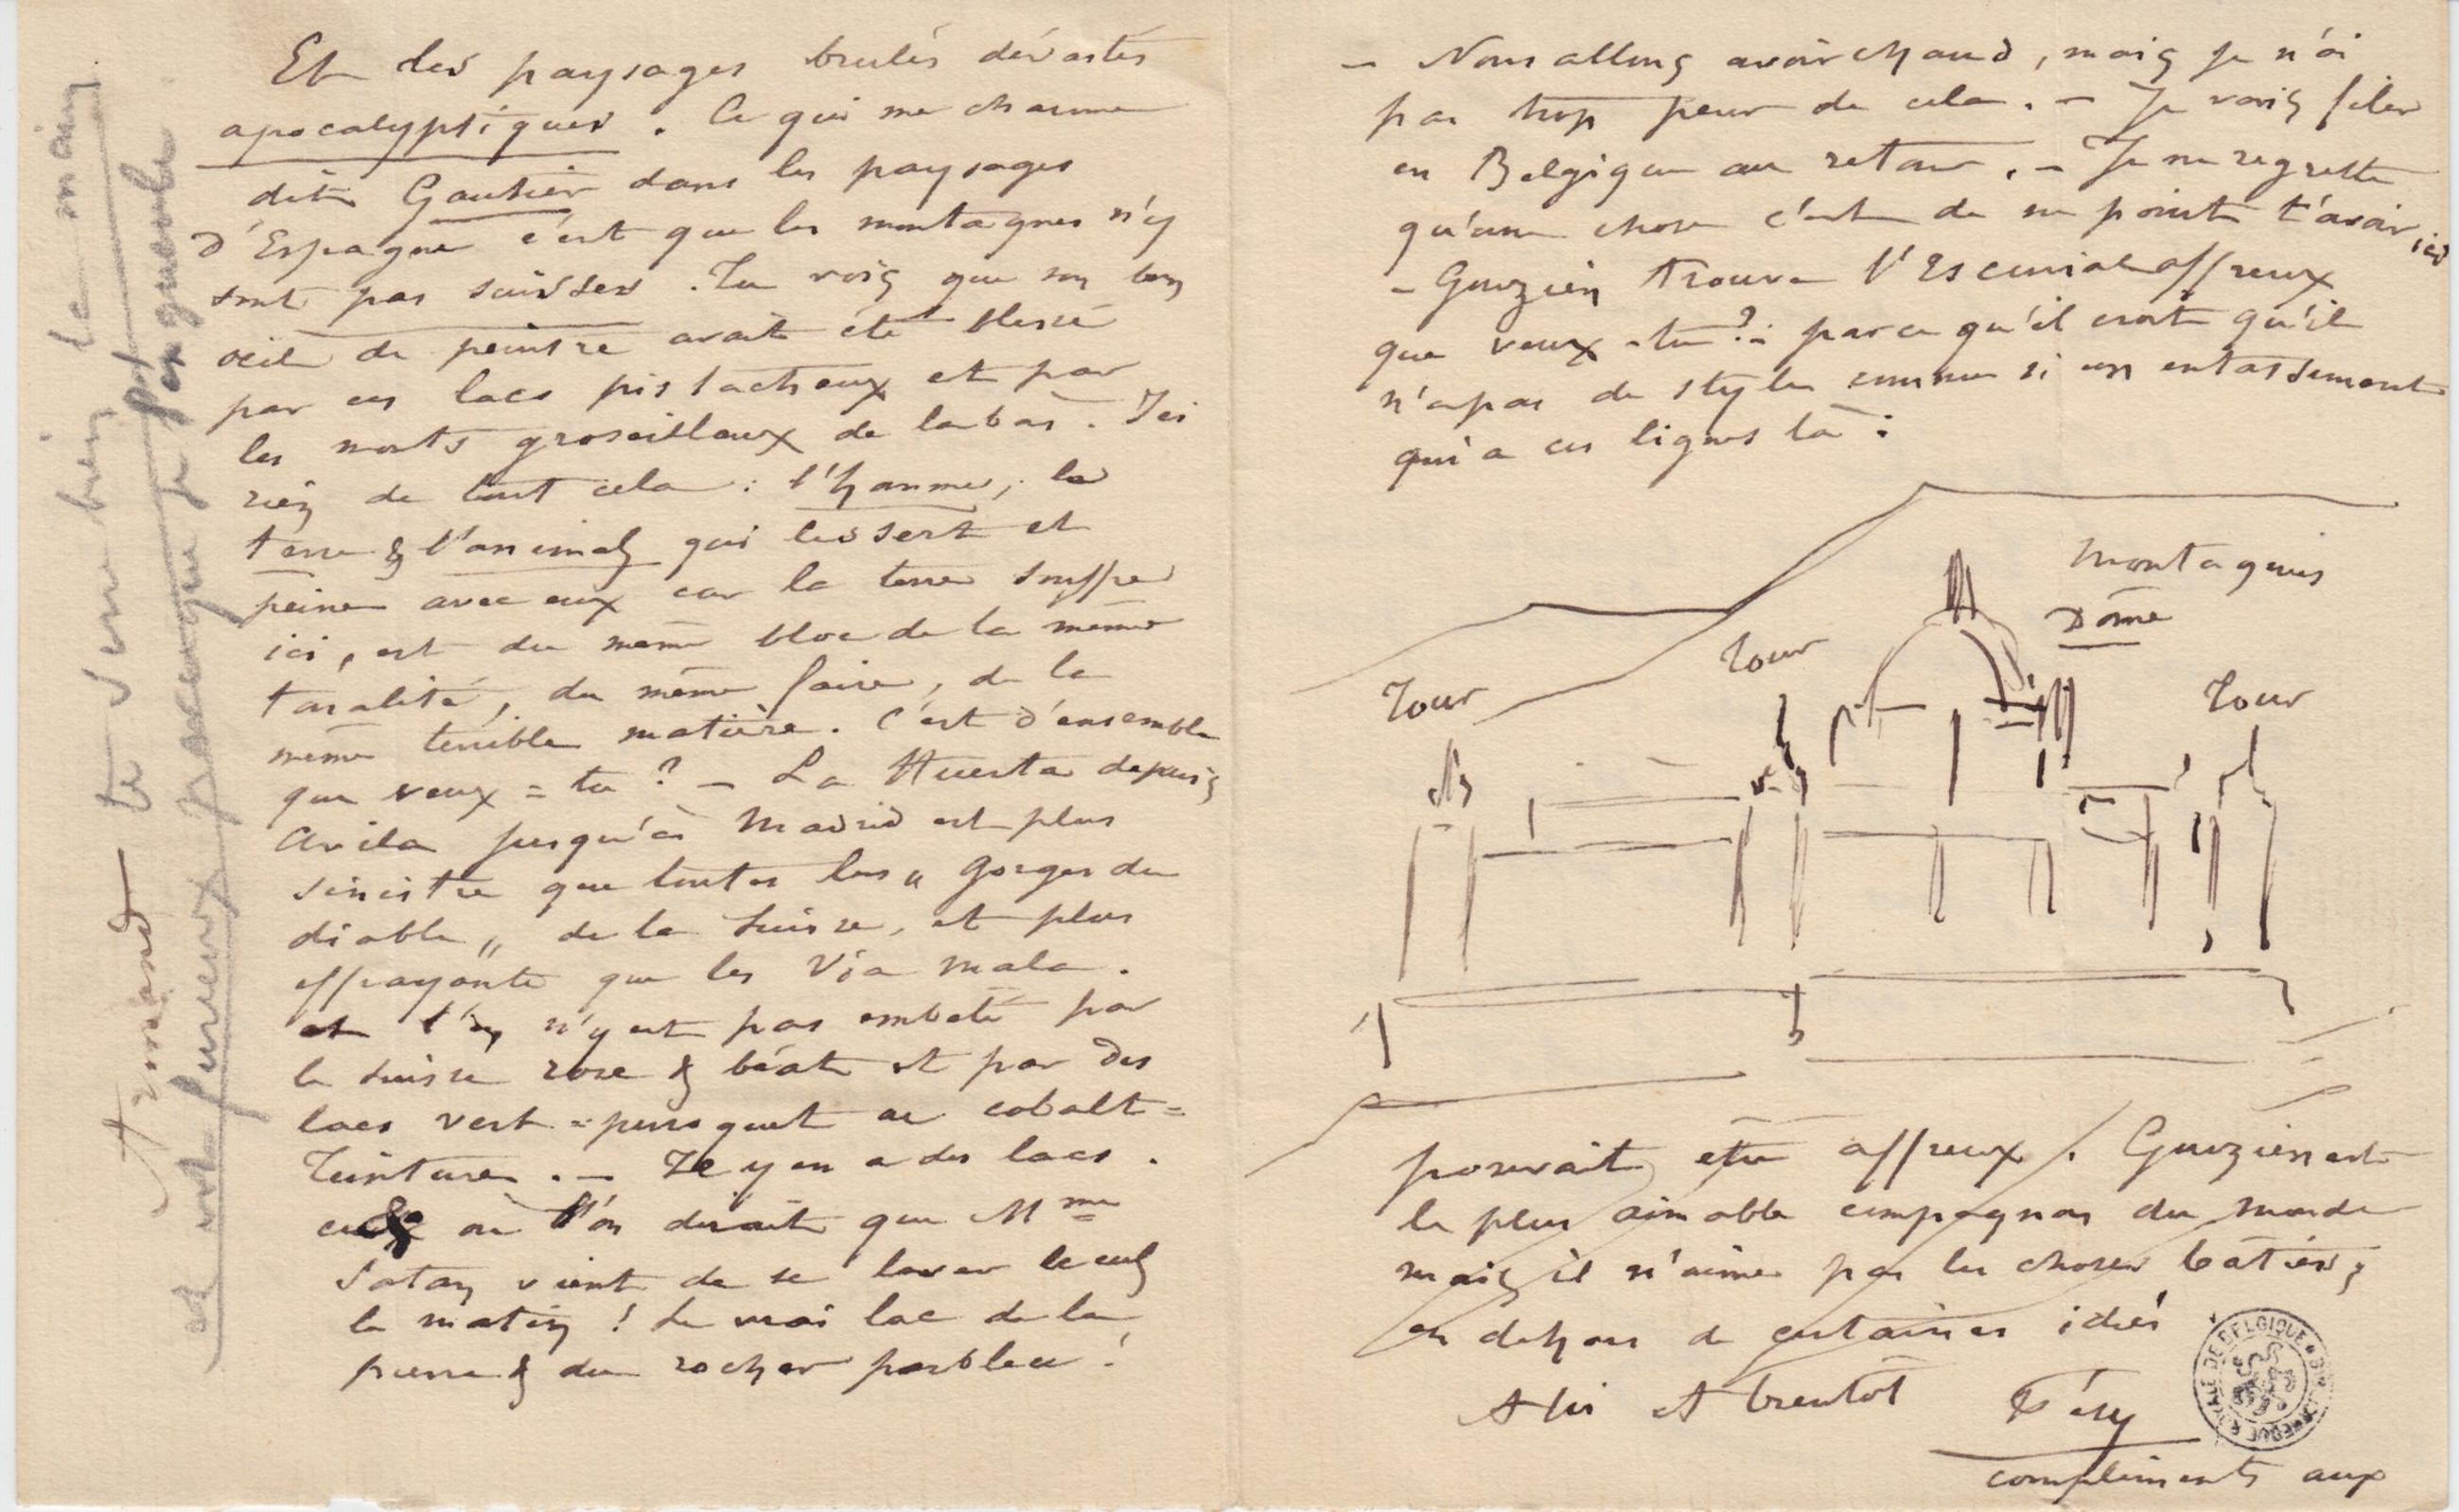 Et les paysages brulés dévastés
apocalyptiques. Ce qui me charme
dit Gautier dans les paysages
d'Espagne c'est que les montagnes n'y
sont pas suisses. Tu vois que son bon
oeil de peintre avait été blessé
par ces lacs pistacheux et par
les monts groseilleux de labas. Ici
rien de tout cela : l'homme, la
terre & l'animal qui les sert et
peine avec eux car la terre souffre
ici, est du même bloc de la même
tonalité, du même faire, de la
même terrible matière. C'est d'ensemble
que veux=tu ? – La Huerta depuis
Avila jusqu'à Madrid est plus
sinistre que toutes les „ Gorges du
diable „ de la Suisse, et plus
effrayante que les Via Mala.
et l'on n'y est pas embeté par
la suisse rose & béate et par des
lacs vert=perroquet au cobalt=
Teinture. – Il y en a des lacs.
où l'on dirait que Mme
Satan vient de se laver le cul
le matin ! Le vrai lac de la
pierre & du rocher parbleu !
Armand te serre bien la main.
– Nous allons avoir chaud, mais je n'ai
pas trop peur de cela. – Je vais filer
en Belgique au retour. – Je ne regrette
qu'une chose c'est de ne point t'avoir ici
– Gouzien trouve l'Escurial affreux
que veux-tu ? – parce qu'il croit qu'il
n'a pas de style comme si un entassement
qui a ces lignes là :
Montagnes
Dôme
Tour
Tour
Tour
pouvait etre affreux. Gouzien est
le plus aimable compagnon du monde
mais il n'aime pas les choses bâties,
en dehors de certaines idées
A toi et A bientôt Fély
compliments aux